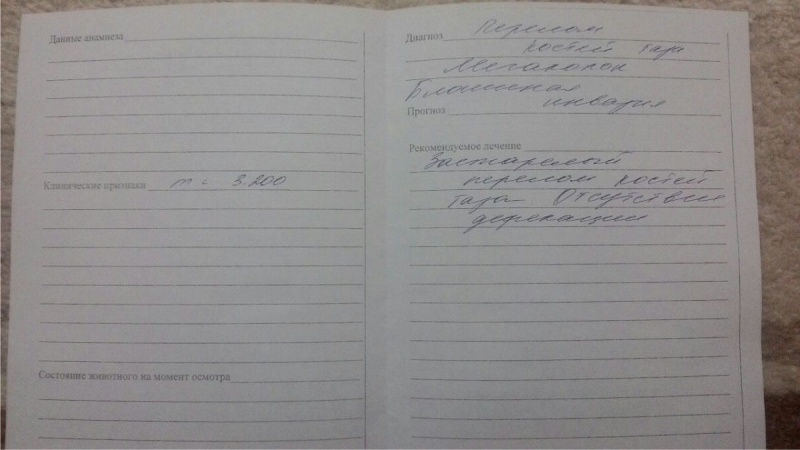 Данные анамнеза
Клинические признаки m = 3.200
Состояние животного на момент осмотра
Диагноз Перелом
костей таза
Мегаколон
Блошиная
инвазия
Прогноз
Рекомендуемое лечение
Застарелый
перелом костей
таза Отсутствие
дефекации